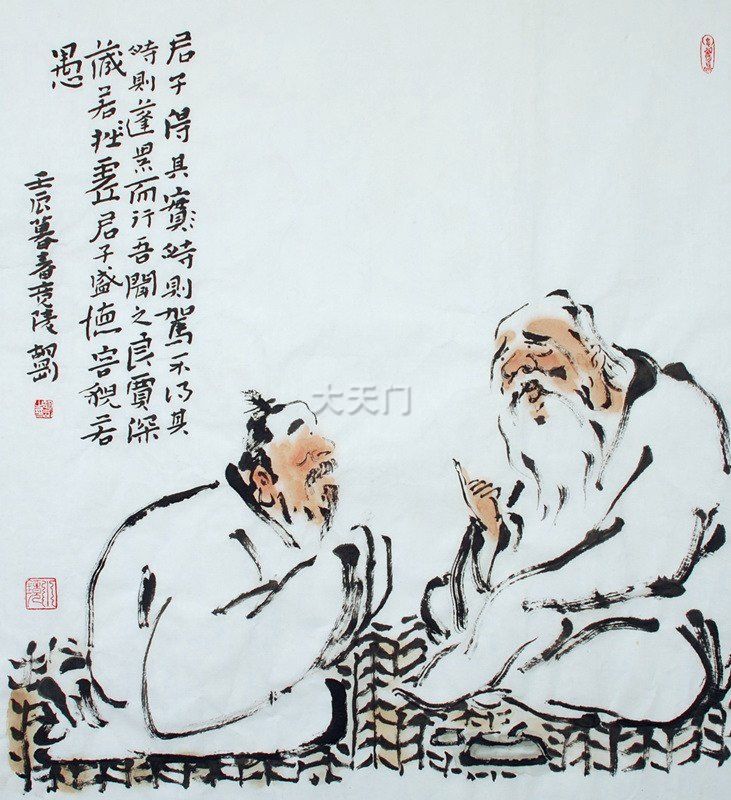 君子得其時則駕不得其
時則蓬累而行吾聞之良賈深
藏若虛君子盛德容貌若
愚
壬辰暮春竟陵
大天门